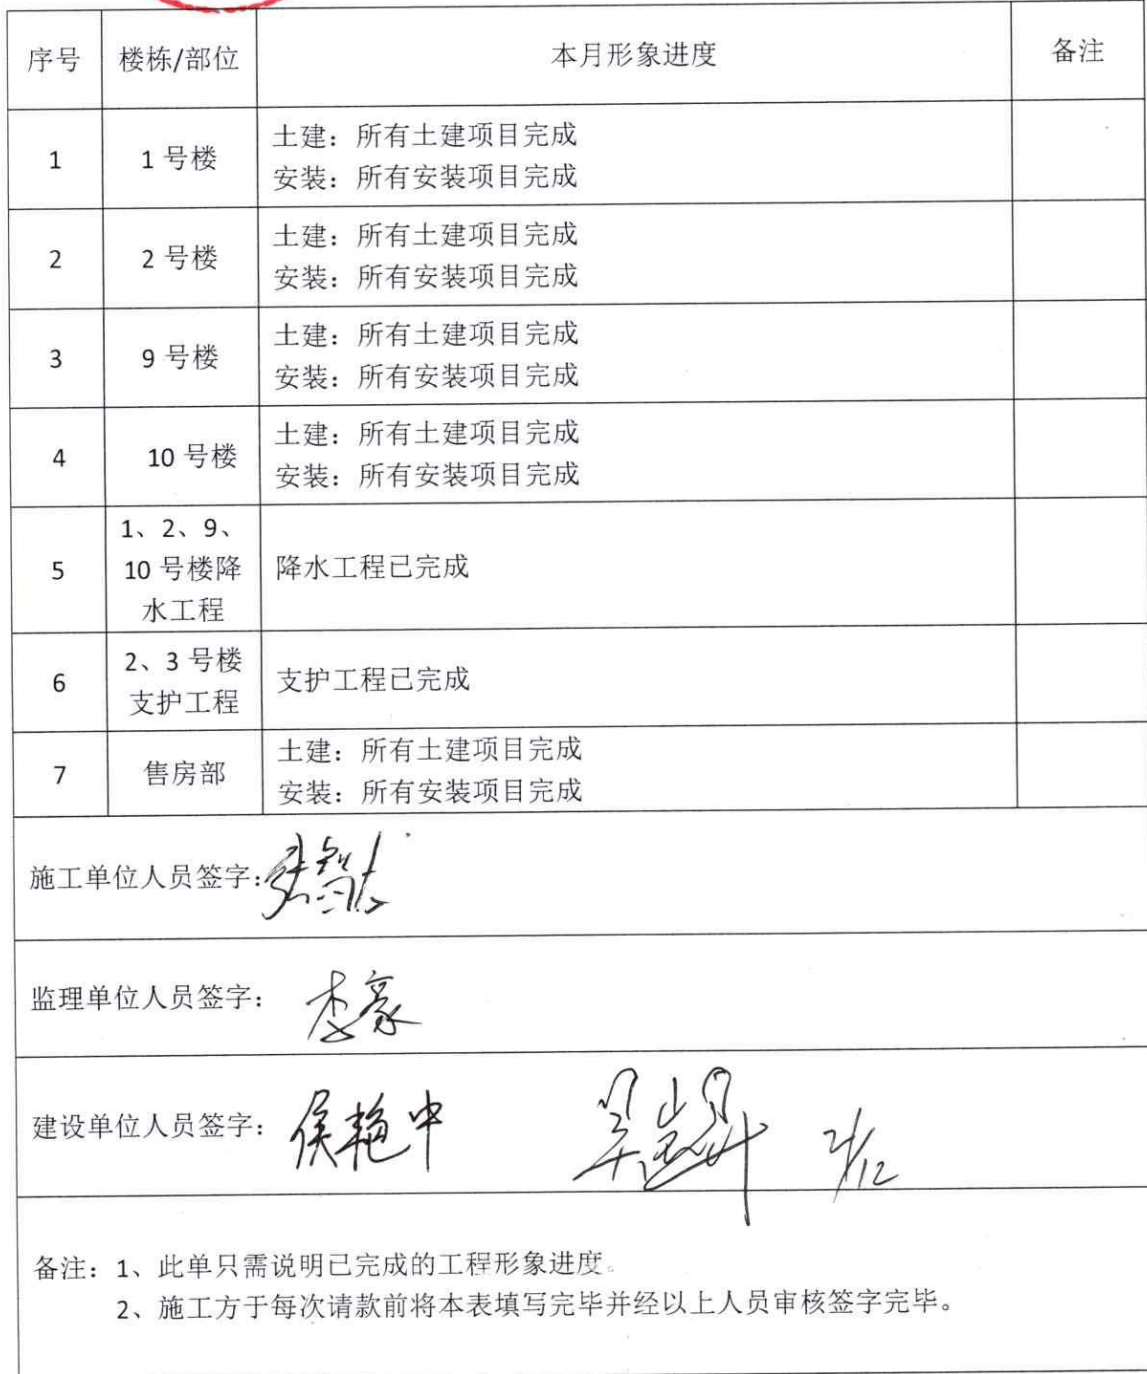 序号 楼栋/部位 本月形象进度 备注
1 1 号楼 土建：所有土建项目完成
安装：所有安装项目完成
2 2 号楼 土建：所有土建项目完成
安装：所有安装项目完成
3 9 号楼 土建：所有土建项目完成
安装：所有安装项目完成
4 10 号楼 土建：所有土建项目完成
安装：所有安装项目完成
1、2、9、
5 10 号楼降 降水工程已完成
水工程
6 2、3 号楼 支护工程已完成
支护工程
7 售房部 土建：所有土建项目完成
安装：所有安装项目完成
施工单位人员签字：
监理单位人员签字： 李豪
建设单位人员签字： 侯艳中
备注：1、此单只需说明已完成的工程形象进度。
2、施工方于每次请款前将本表填写完毕并经以上人员审核签字完毕。